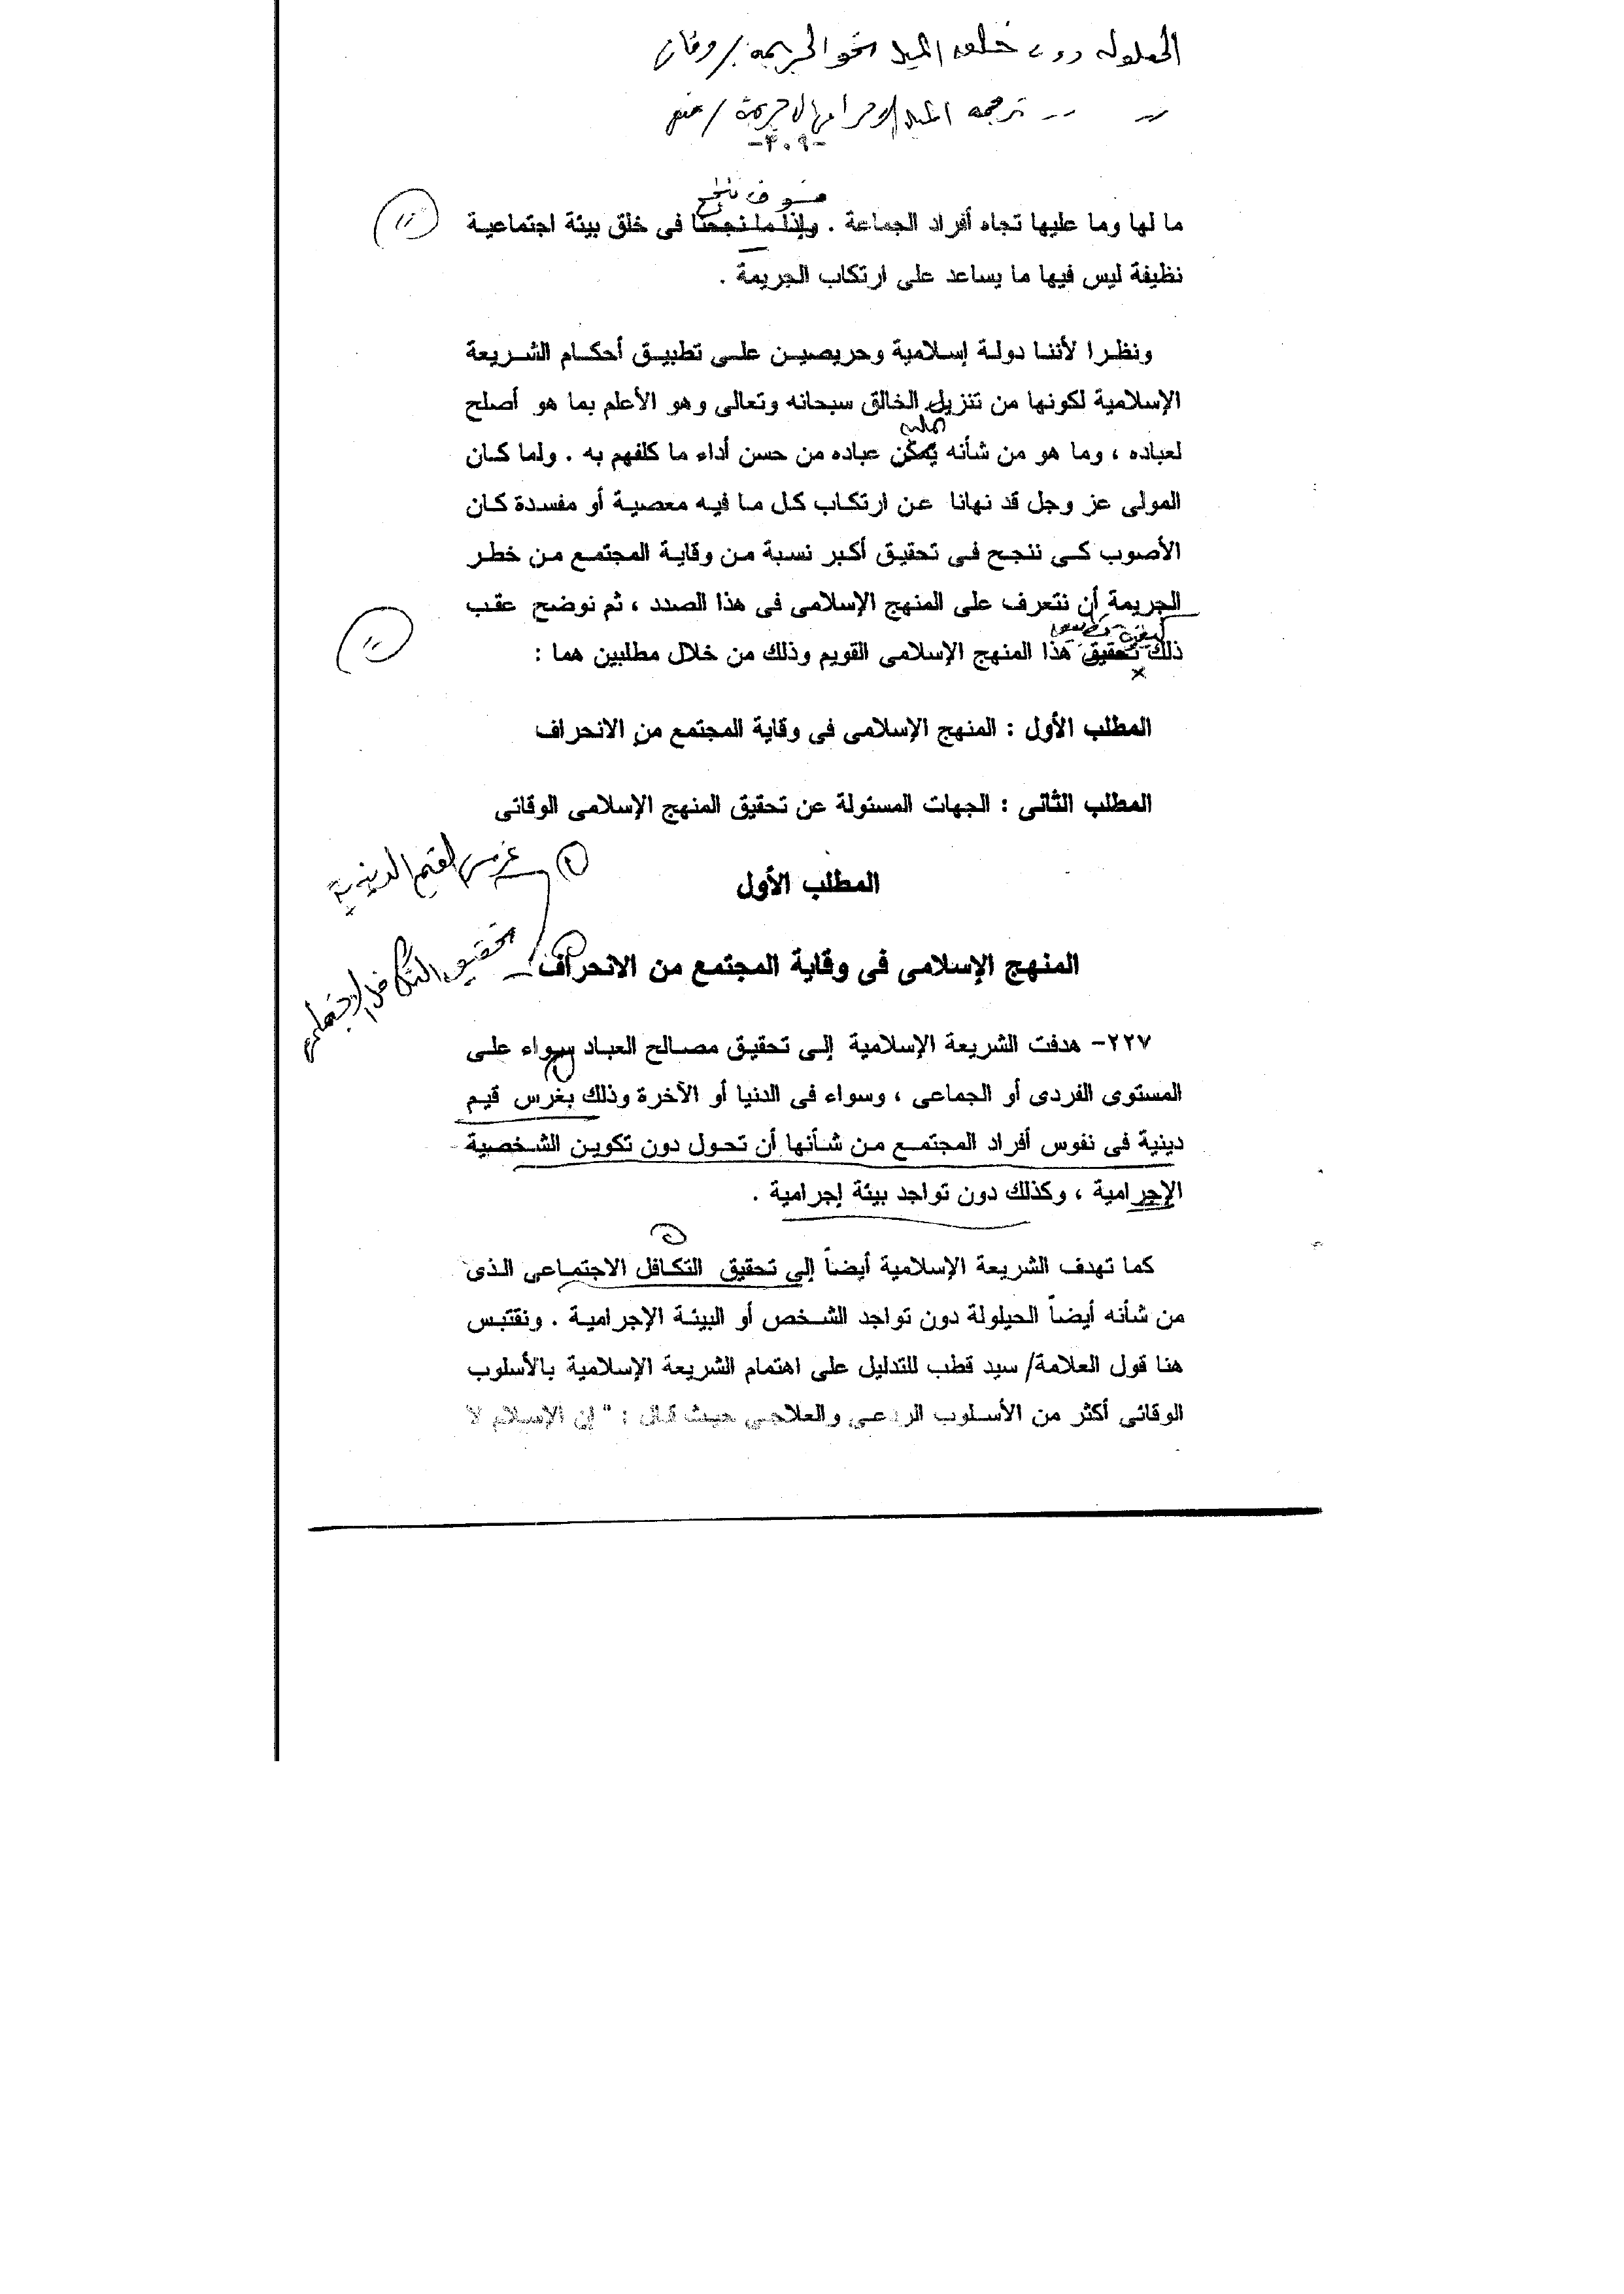 الحيلولة دون خلق الميل نحو الجريمة / وقائى
" -- ترجمة الميل الإجرامى الى جريمة / منع
-٤٠٩-
فسوف ننجح
ما لها وما عليها تجاه أفراد الجماعة . وإذا ما نجحنا فى خلق بيئة اجتماعية
نظيفة ليس فيها ما يساعد على ارتكاب الجريمة .
ونظرا لأننا دولة إسلامية وحريصين على تطبيق أحكام الشريعة
الإسلامية لكونها من تنزيل الخالق سبحانه وتعالى وهو الأعلم بما هو أصلح
لعباده ، وما هو من شأنه يمكن عباده من حسن أداء ما كلفهم به . ولما كان
المولى عز وجل قد نهانا عن ارتكاب كل ما فيه معصية أو مفسدة كان
الأصوب كى ننجح فى تحقيق أكبر نسبة من وقاية المجتمع من خطر
الجريمة أن نتعرف على المنهج الإسلامى فى هذا الصدد ، ثم نوضح عقب
ذلك تحقيق هذا المنهج الإسلامى القويم وذلك من خلال مطلبين هما :
المطلب الأول : المنهج الإسلامى فى وقاية المجتمع من الانحراف
المطلب الثانى : الجهات المسئولة عن تحقيق المنهج الإسلامى الوقائى
١ غرس القيم الدينية
المطلب الأول
المنهج الإسلامى فى وقاية المجتمع من الانحراف
تحقيق التكافل الاجتماعى
٢٢٧- هدفت الشريعة الإسلامية إلى تحقيق مصالح العباد سواء على
المستوى الفردى أو الجماعى ، وسواء فى الدنيا أو الآخرة وذلك بغرس قيم
دينية فى نفوس أفراد المجتمع من شأنها أن تحول دون تكوين الشخصية
الإجرامية ، وكذلك دون تواجد بيئة إجرامية .
كما تهدف الشريعة الإسلامية أيضاً إلى تحقيق التكافل الاجتماعى الذى
من شأنه أيضاً الحيلولة دون تواجد الشخص أو البيئة الإجرامية . ونقتبس
هنا قول العلامة/ سيد قطب للتدليل على اهتمام الشريعة الإسلامية بالأسلوب
الوقائى أكثر من الأسلوب الردعى والعلاجى حيث قال : " إن الإسلام لا